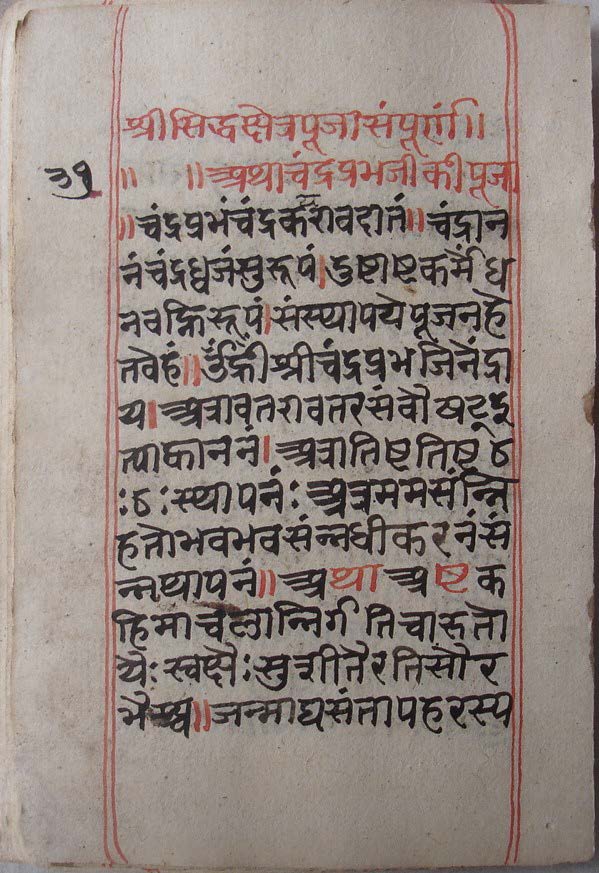 श्रीसिद्धक्षेत्रपूजासंपूर्णं॥
३१
॥ ॥अथाचंद्रप्रभजीकीपूजा
॥चंद्रप्रभंचंद्रकरावदातं॥चंद्रान
नंचंद्रध्वजंसुरूपं।दुष्टाष्टकर्मेध
नवह्निरूपं।संस्थापयेपूजनहे
तवेहं॥ॐह्रीश्रीचंद्रप्रभजिनेंद्रा
य।अत्रावतरावतरसंवौषट्इ
त्याकाननं।अत्रातिष्टतिष्ट ठ
:ठ:स्थापनं:अत्रममसंन्नि
हतोभवभवसंन्नधीकरनंसं
न्नथापनं॥अथाअष्टक
हिमाचलान्निर्गतिचारूतो
यै:स्वछै:सुशीतैरतिसौर
भैस्च॥जन्माद्यसंतापहरस्य